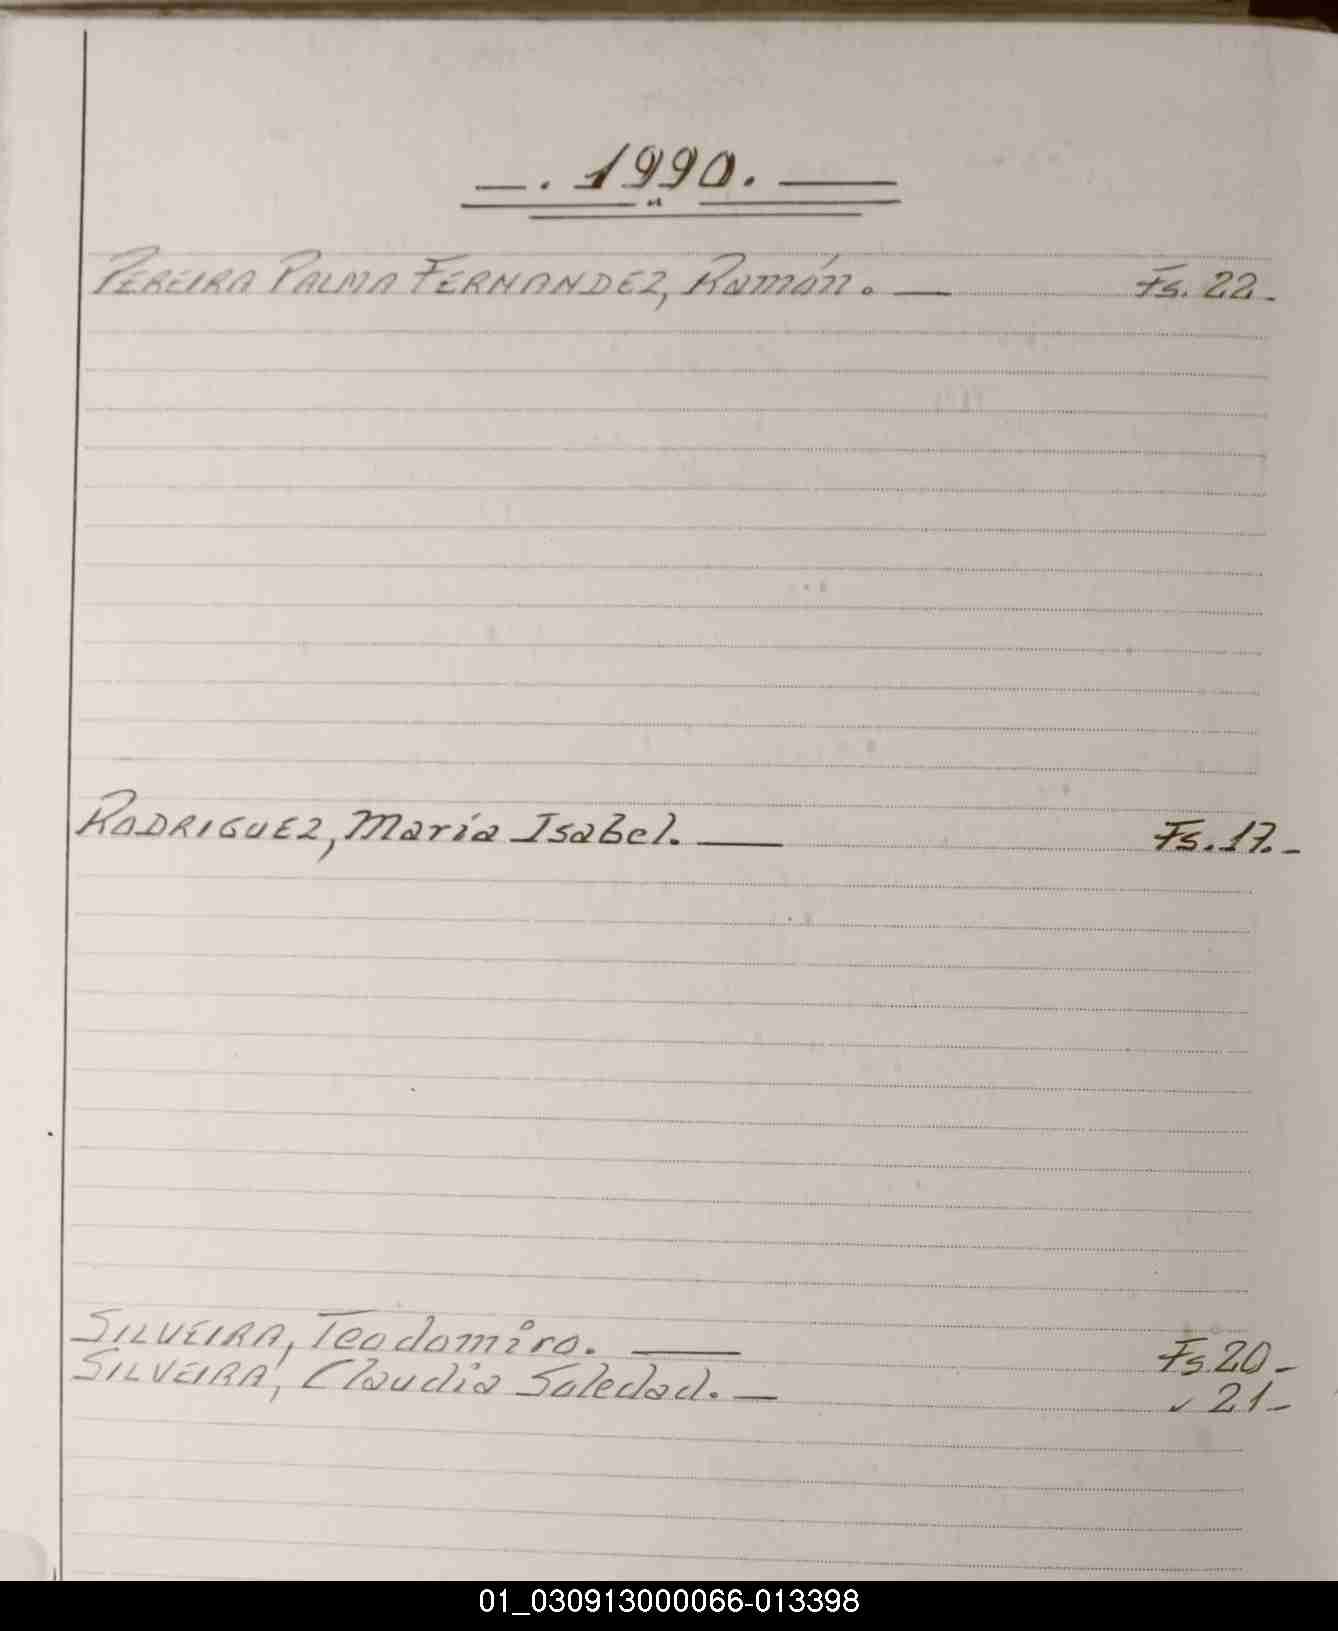 —. 1990. —
PEREIRA PALMA FERNANDEZ, Ramón. — Fs. 22.-
RODRIGUEZ, María Isabel. — Fs. 17.-
SILVEIRA, Teodomiro. — Fs. 20-
SILVEIRA, Claudia Soledad. — " 21-
01_030913000066-013398